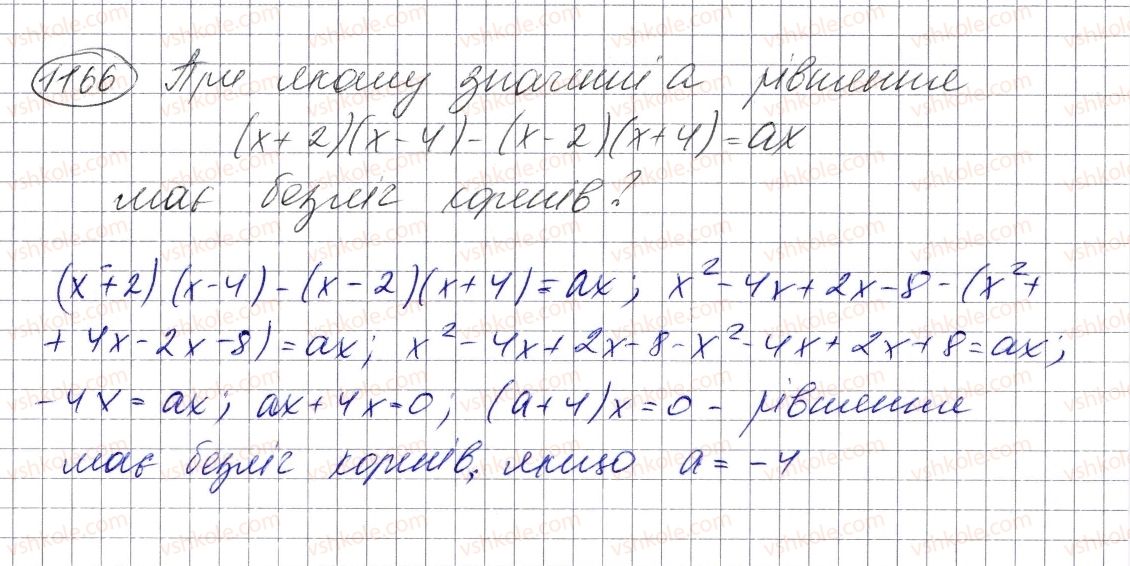 1166 При якому значенні а рівняння
(x+2)(x-4)-(x-2)(x+4)=ax
має безліч коренів?
(x+2)(x-4)-(x-2)(x+4)=ax; x²-4x+2x-8-(x²+
+4x-2x-8)=ax; x²-4x+2x-8-x²-4x+2x+8=ax;
-4x=ax; ax+4x=0; (a+4)x=0 - рівняння
має безліч коренів, якщо a=-4